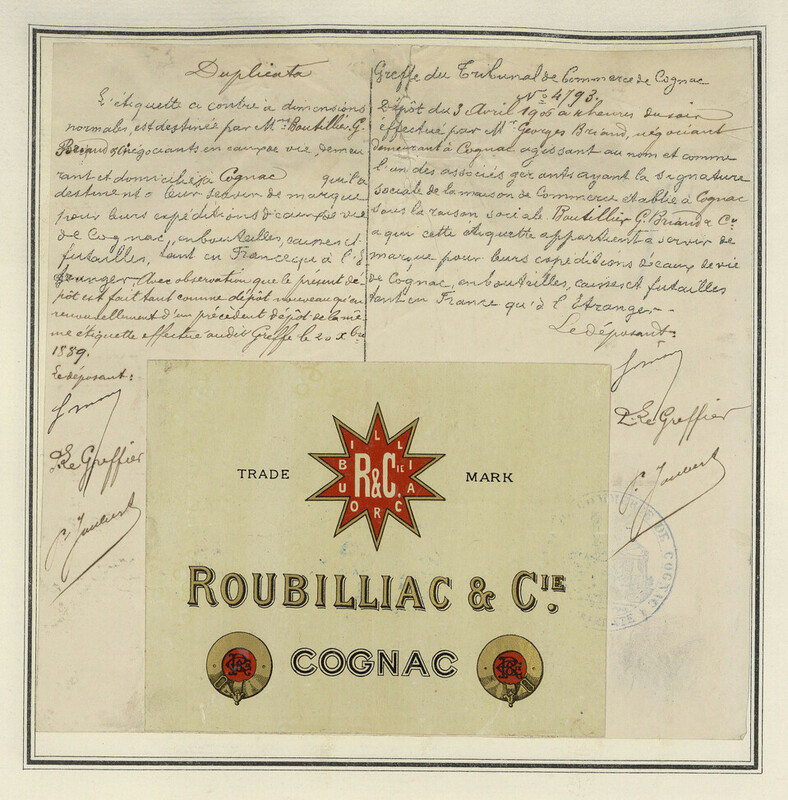 Duplicata
L'étiquette ci contre à dimensions
normales, est destinée par Mrs Boutillier G.
Briand & Cie négociants en eaux de vie, demeu
rant et domiciliés à Cognac qui la
destinent à leur servir de marque
pour leurs expéditions d'eaux de vie
de Cognac, en bouteilles, caisses et
futailles, tant en France qu'à l'É
tranger, Avec observation que le présent dé-
pôt est fait tant comme dépôt nouveau qu'en
renouvellement d'un précédent dépôt de la mê
me étiquette effectué audit Greffe le 20 Xbre
1889.
Le déposant:
Le Greffier
Greffe du Tribunal de Commerce de Cognac
No 4793.
Dépôt du 3 Avril 1906 à heures du soir
effectué par Mr Georges Briand, négociant
demeurant à Cognac agissant au nom et comme
l'un des associés gérants ayant la signature
sociale de la maison de Commerce établie à Cognac
sous la raison sociale Boutillier G. Briand & Cie
à qui cette étiquette appartient à servir de
marque pour leurs expéditions d'eaux de vie
de Cognac, en bouteilles, caisses et futailles
tant en France qu'à l'Étranger.
Le déposant:
Le Greffier
ROUBILLIAC
R&CIE
TRADE MARK
ROUBILLIAC & CIE.
COGNAC
COMMERCE DE COGNAC